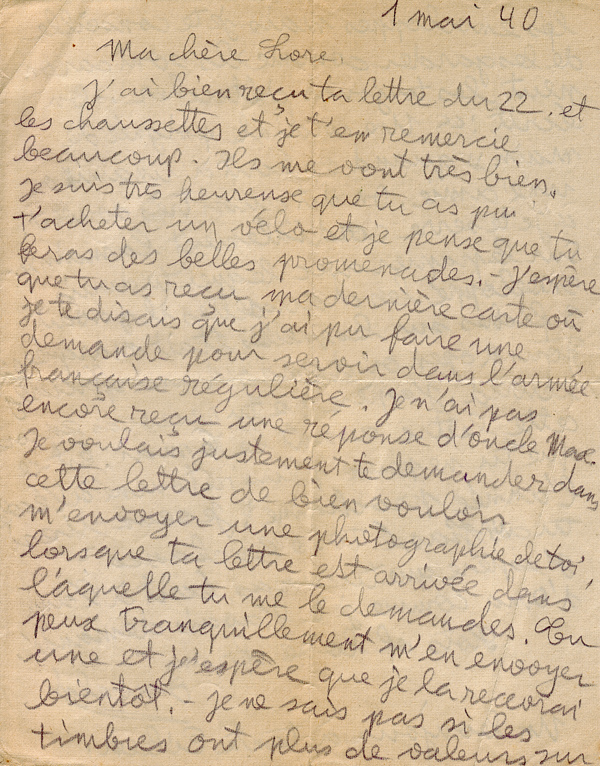 1 mai 40
Ma chère Lore,
J'ai bien reçu ta lettre du 22. et
les chaussettes et je t'en remercie
beaucoup. Ils me vont très bien.
Je suis très heureuse que tu as pu
t'acheter un vélo et je pense que tu
feras des belles promenades. - J'espère
que tu as reçu ma dernière carte où
je te disais que j'ai pu faire une
demande pour servir dans l'armée
française régulière. Je n'ai pas
encore reçu une réponse d'oncle Max.
Je voulais justement te demander dans
cette lettre de bien vouloir
m'envoyer une photographie de toi,
lorsque ta lettre est arrivée dans
laquelle tu me le demandes. Tu
peux tranquillement m'en envoyer
une et j'espère que je la recevrai
bientôt. - Je ne sais pas si les
timbres ont plus de valeurs sur